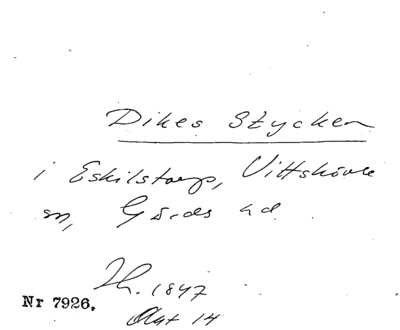 Dikes Stycken
i Eskilstorp, Vittskövle
sn, Gärds hd.
Th. 1847
Nr 7926.
Akt 14